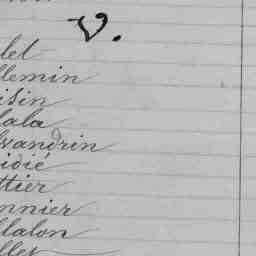 V.
let
llemin
isin
lala
lvandrin
idié
ttier
nnier
llalon
llet